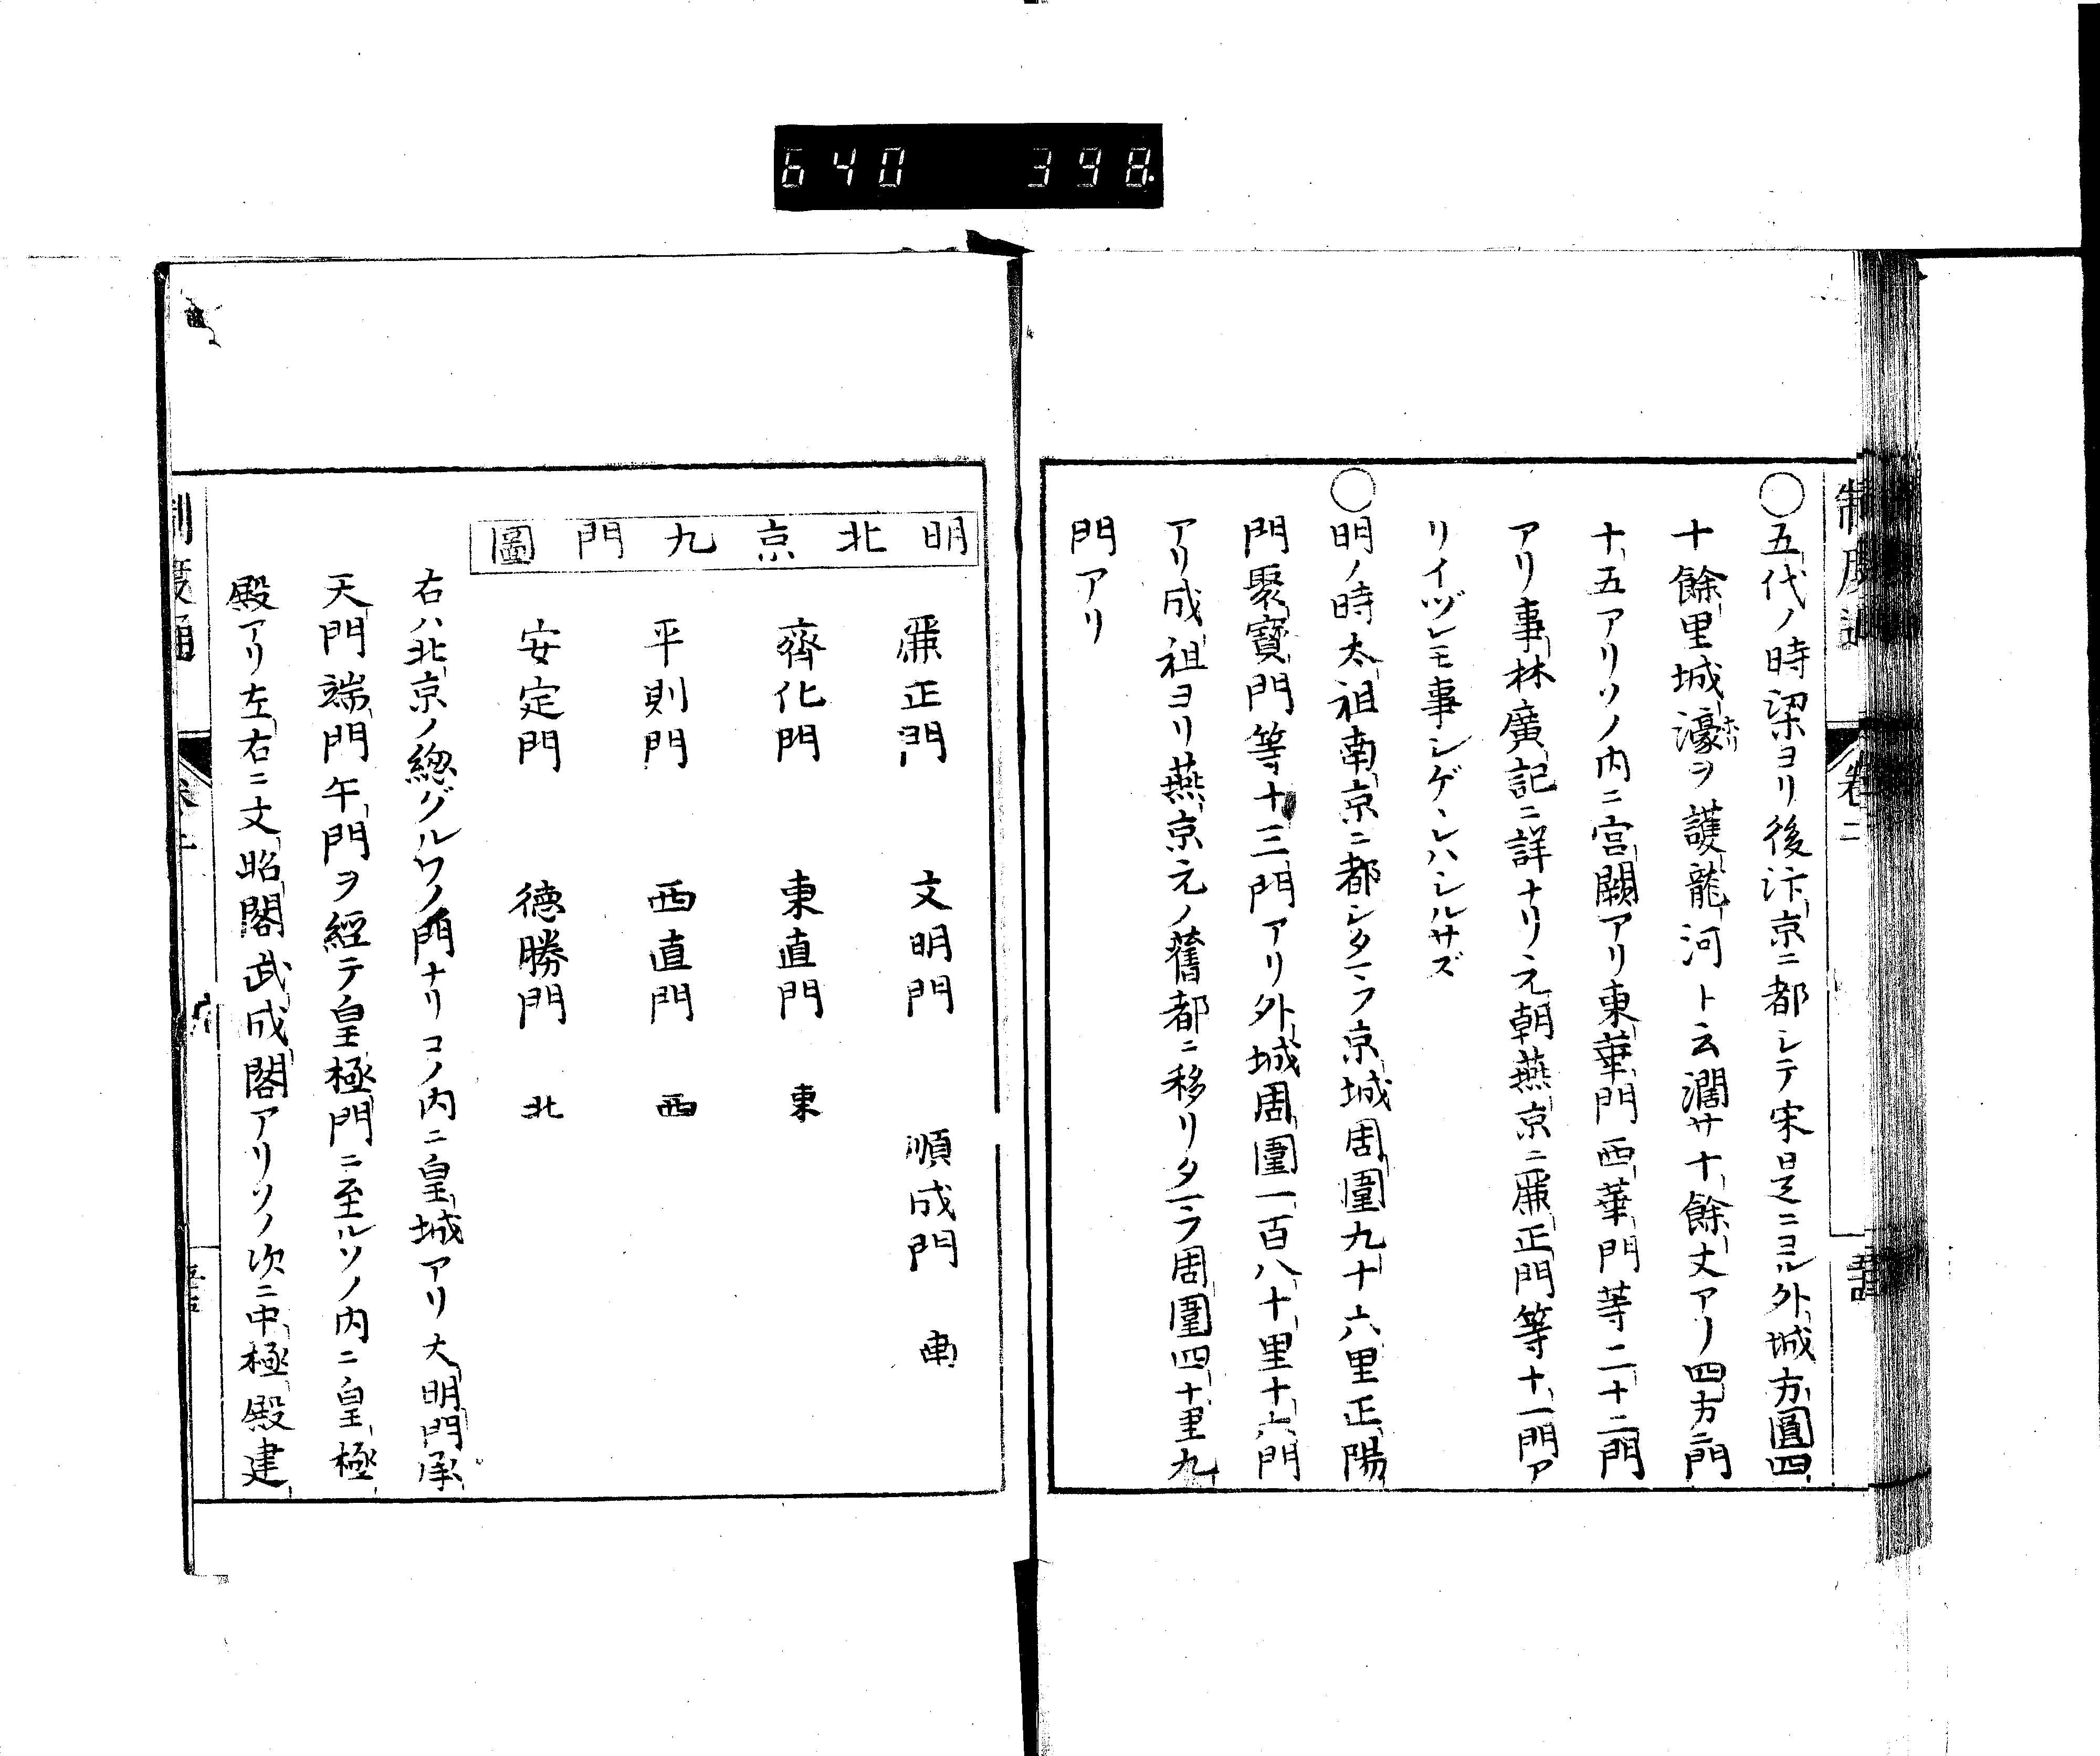 640 398
制度通 卷二
〇五代ノ時梁ヨリ後汴京ニ都シテ宋是ニヨル外城方圓四
十餘里城濠ヲ護龍河ト云濶サ十餘丈アリ四方ニ門
ホリ
十五アリソノ内ニ宮闕アリ東華門西華門等二十二門
アリ事林廣記ニ詳ナリ元朝燕京ニ麗正門等十一門ア
リイヅレモ事シゲヽレハシルサズ
〇明ノ時太祖南京ニ都シタマフ京城周圍九十六里正陽
門聚寶門等十三門アリ外城周圍一百八十里十六門
アリ成祖ヨリ燕京元ノ舊都ニ移リタマフ周圍四十里九
門アリ
明北京九門圖
麗正門 文明門 順成門 南
齊化門 東直門 東
平則門 西直門 西
安定門 德勝門 北
右ハ北京ノ總グルワノ門ナリコノ内ニ皇城アリ大明門承
天門端門午門ヲ經テ皇極門ニ至ルソノ内ニ皇極
殿アリ左右ニ文昭閣武成閣アリソノ次ニ中極殿建
制度通